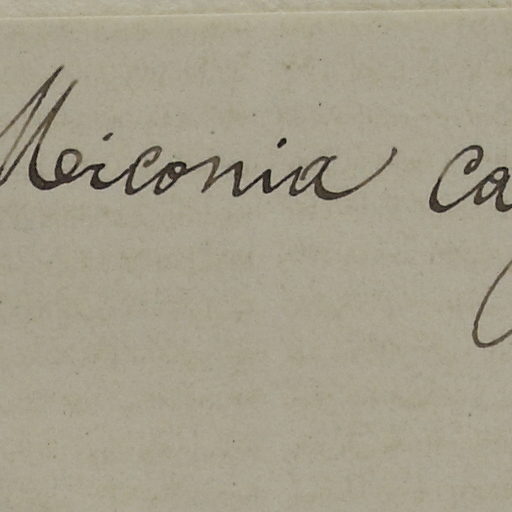 Meiconia ca